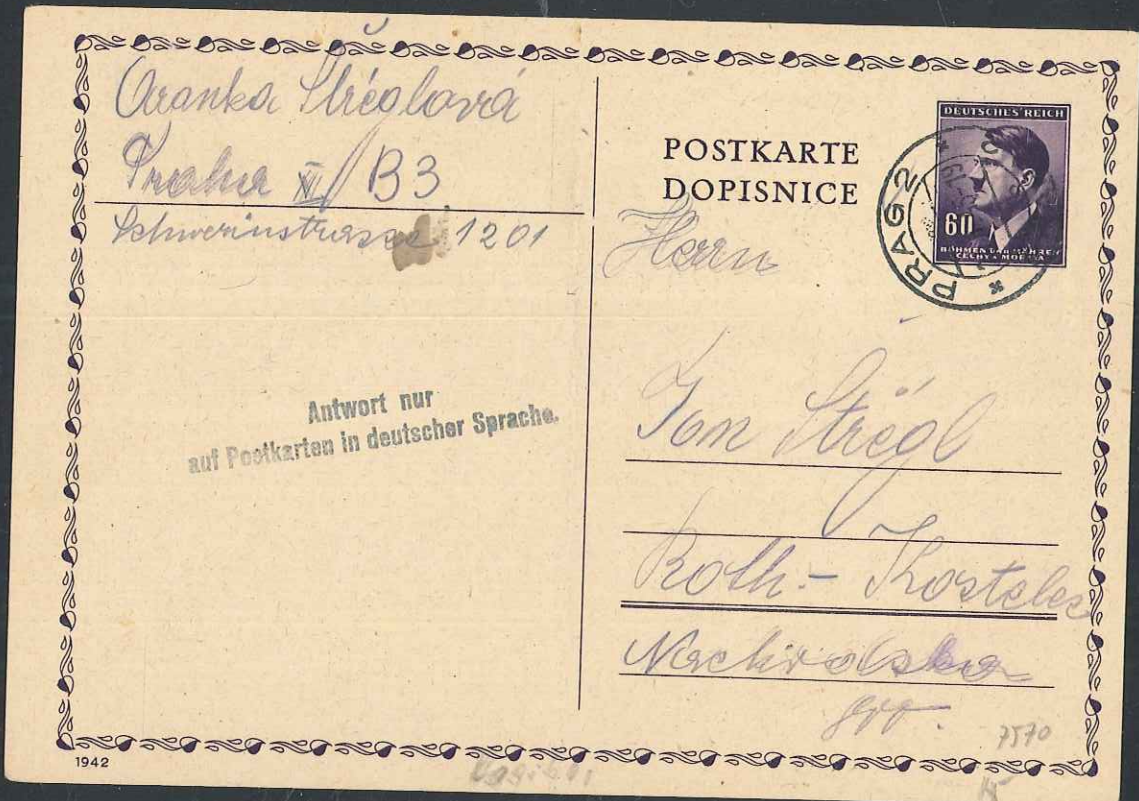 Aranka Střéglová
Praha XII/B3
Schwerinstrasse 1201
Antwort nur
auf Postkarten in deutscher Sprache.
POSTKARTE
DOPISNICE
DEUTSCHES REICH
60
BÖHMEN UND MÄHREN
ČECHY A MORAVA
PRAG 2
Herrn
Střégl
Roth-Kosteletz
7570
1942